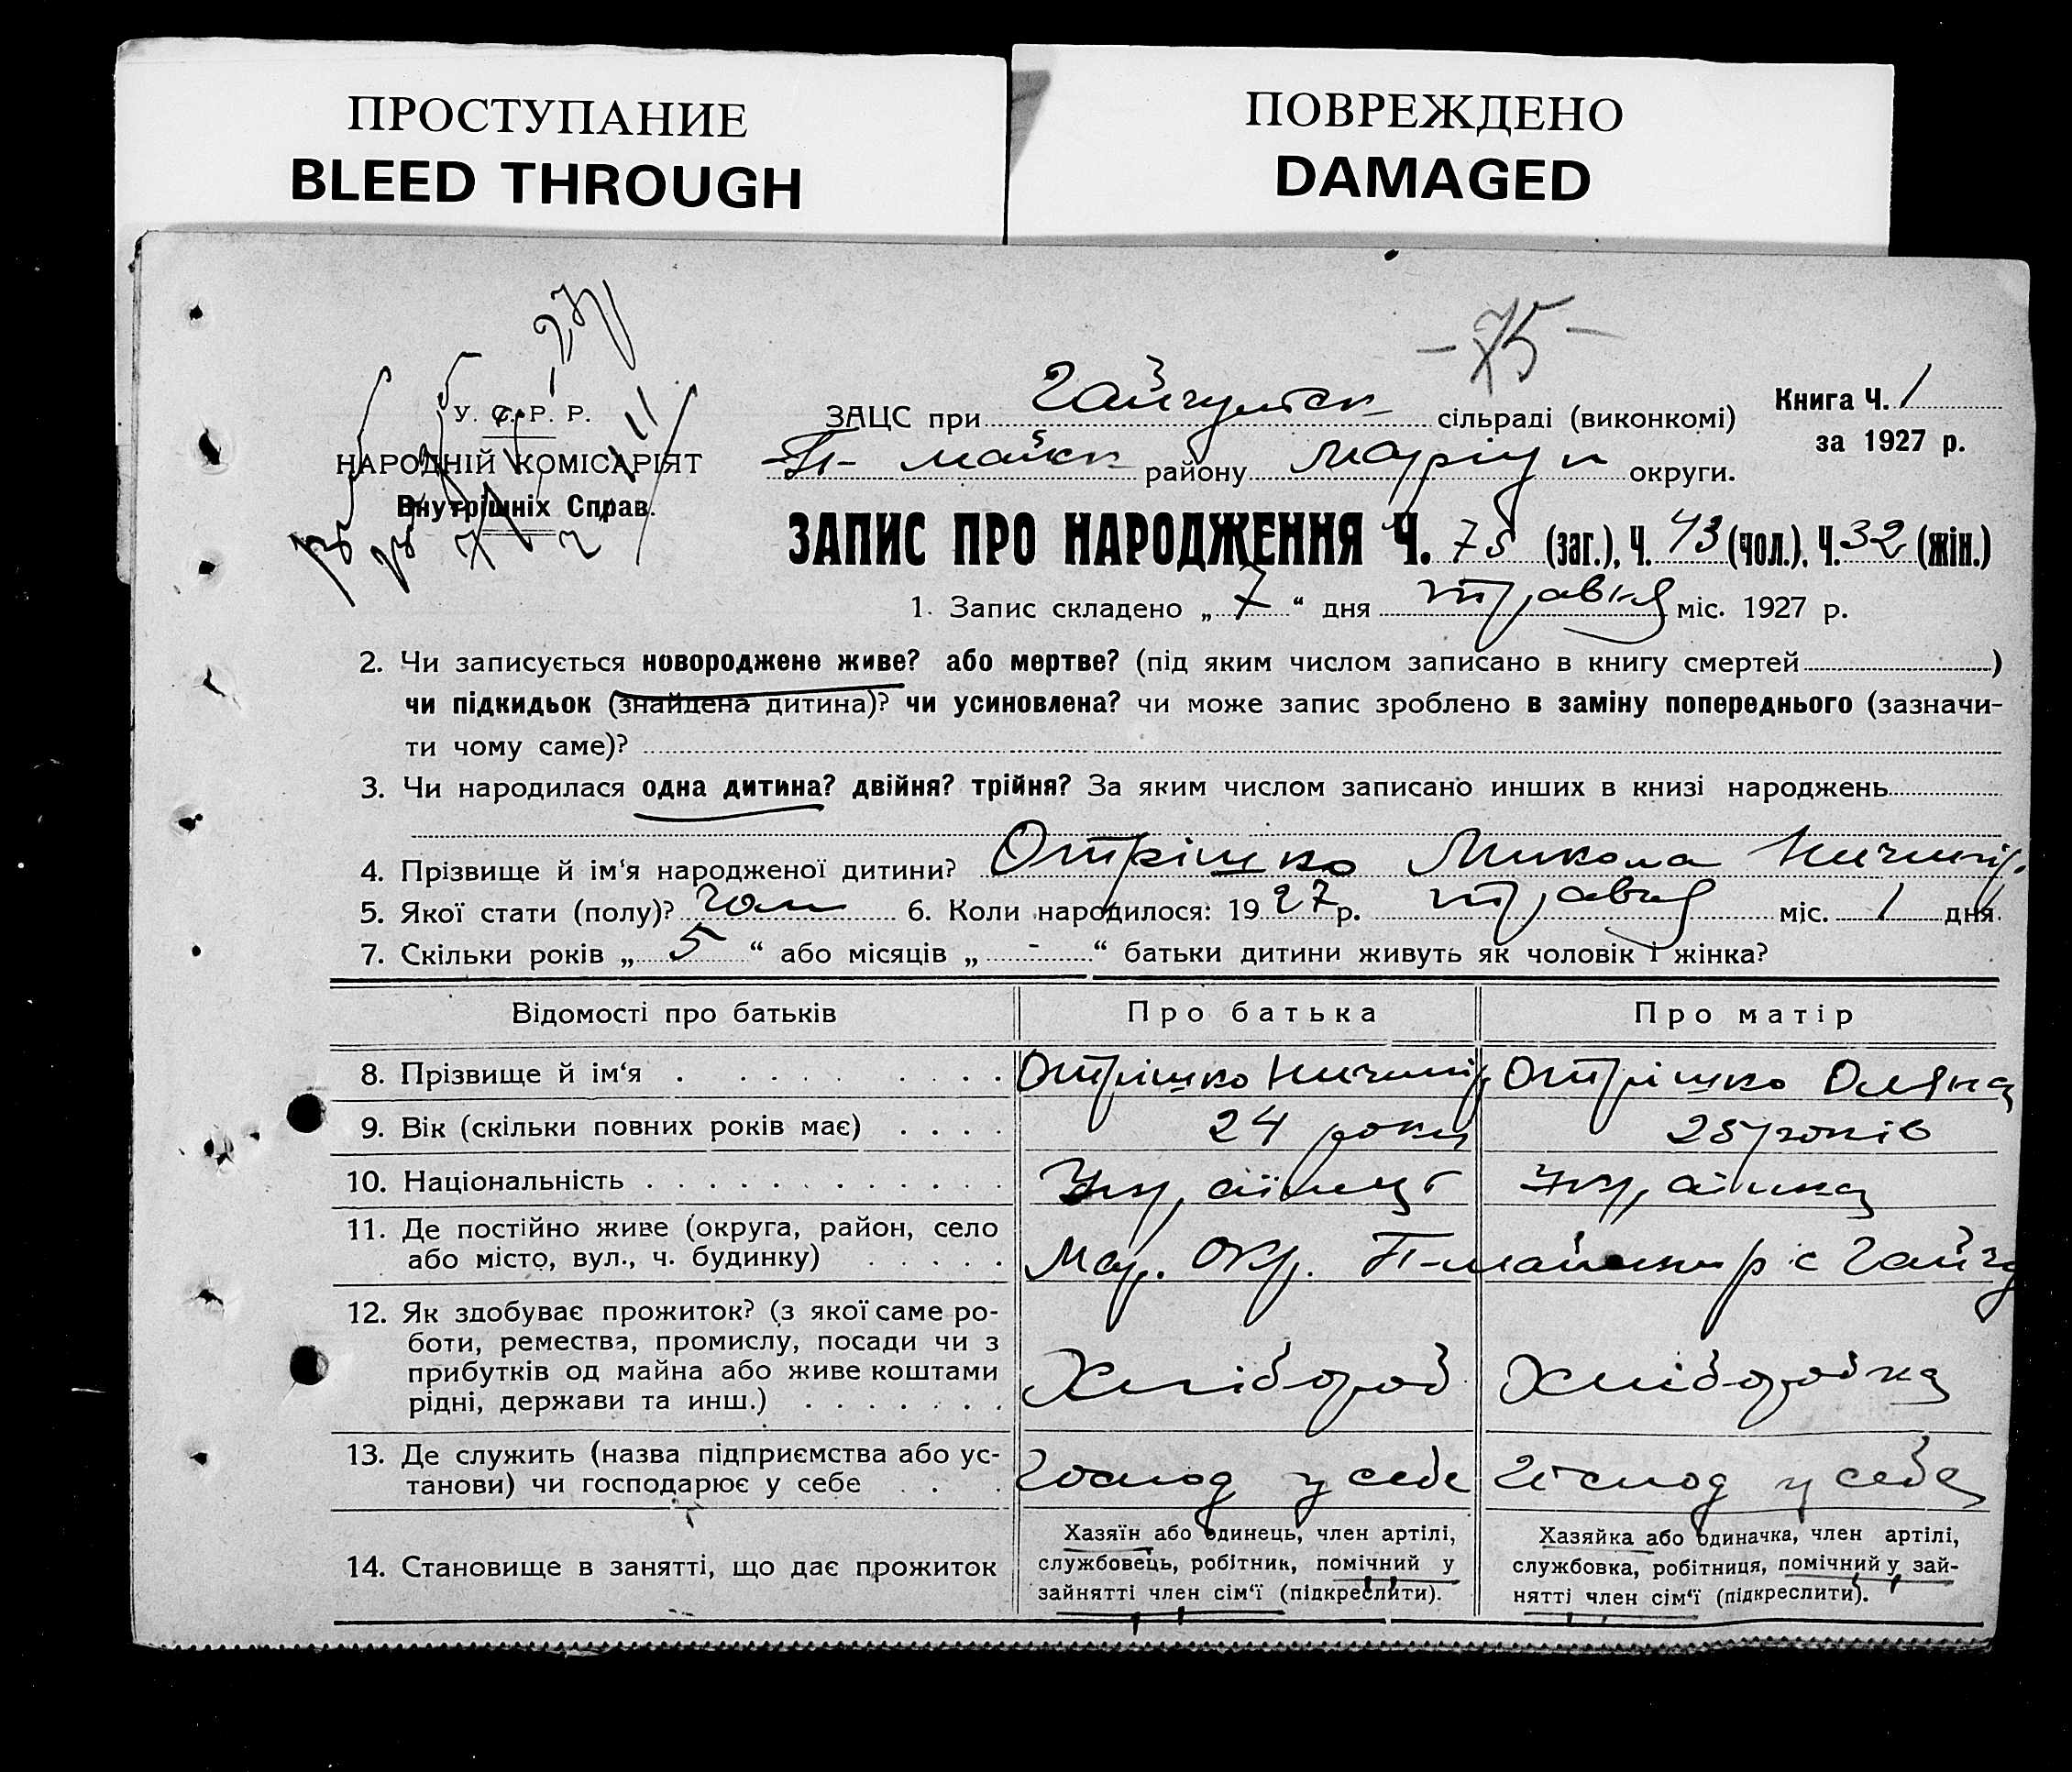 ПРОСТУПАНИЕ
BLEED THROUGH
ПОВРЕЖДЕНО
DAMAGED
-75-
У. С. Р. Р.
НАРОДНІЙ КОМІСАРІЯТ
Внутрішніх Справ.
ЗАЦС при Гайчульск сільраді (виконкомі)
Книга Ч. 1
за 1927 р.
П-майск району Маріуп округи.
ЗАПИС ПРО НАРОДЖЕННЯ Ч. 75 (заг.), Ч. 43 (чол.), Ч. 32 (жін.)
1. Запис складено „ 7 “ дня травня міс. 1927 р.
2. Чи записується новороджене живе? або мертве? (під яким числом записано в книгу смертей )
чи підкидьок (знайдена дитина)? чи усиновлена? чи може запис зроблено в заміну попереднього (зазначи-
ти чому саме)?
3. Чи народилася одна дитина? двійня? трійня? За яким числом записано инших в книзі народжень
4. Прізвище й ім‘я народженої дитини? Отрішко Микола Ничипір.
5. Якої стати (полу)? чол 6. Коли народилося: 1927 р. травня міс. 1 дня.
7. Скільки років „ 5 “ або місяців „ - “ батьки дитини живуть як чоловік і жінка?
Відомості про батьків Про батька Про матір
8. Прізвище й ім‘я Отрішко Ничипір Отрішко Оляна
9. Вік (скільки повних років має) 24 роки 25 років
10. Національність Українец Українка
11. Де постійно живе (округа, район, село
або місто, вул., ч. будинку) Мар. окр. П-майськ р с Гайчу
12. Як здобуває прожиток? (з якої саме ро-
боти, ремества, промислу, посади чи з
прибутків од майна або живе коштами
рідні, держави та инш.) Хлібороб Хліборобка
13. Де служить (назва підприємства або ус-
танови) чи господарює у себе Господ у себе Господ у себе
14. Становище в занятті, що дає прожиток
Хазяїн або одинець, член артілі,
службовець, робітник, помічний у
зайнятті член сім‘ї (підкреслити).
Хазяйка або одиначка, член артілі,
службовка, робітниця, помічний у зай-
нятті член сім‘ї (підкреслити).